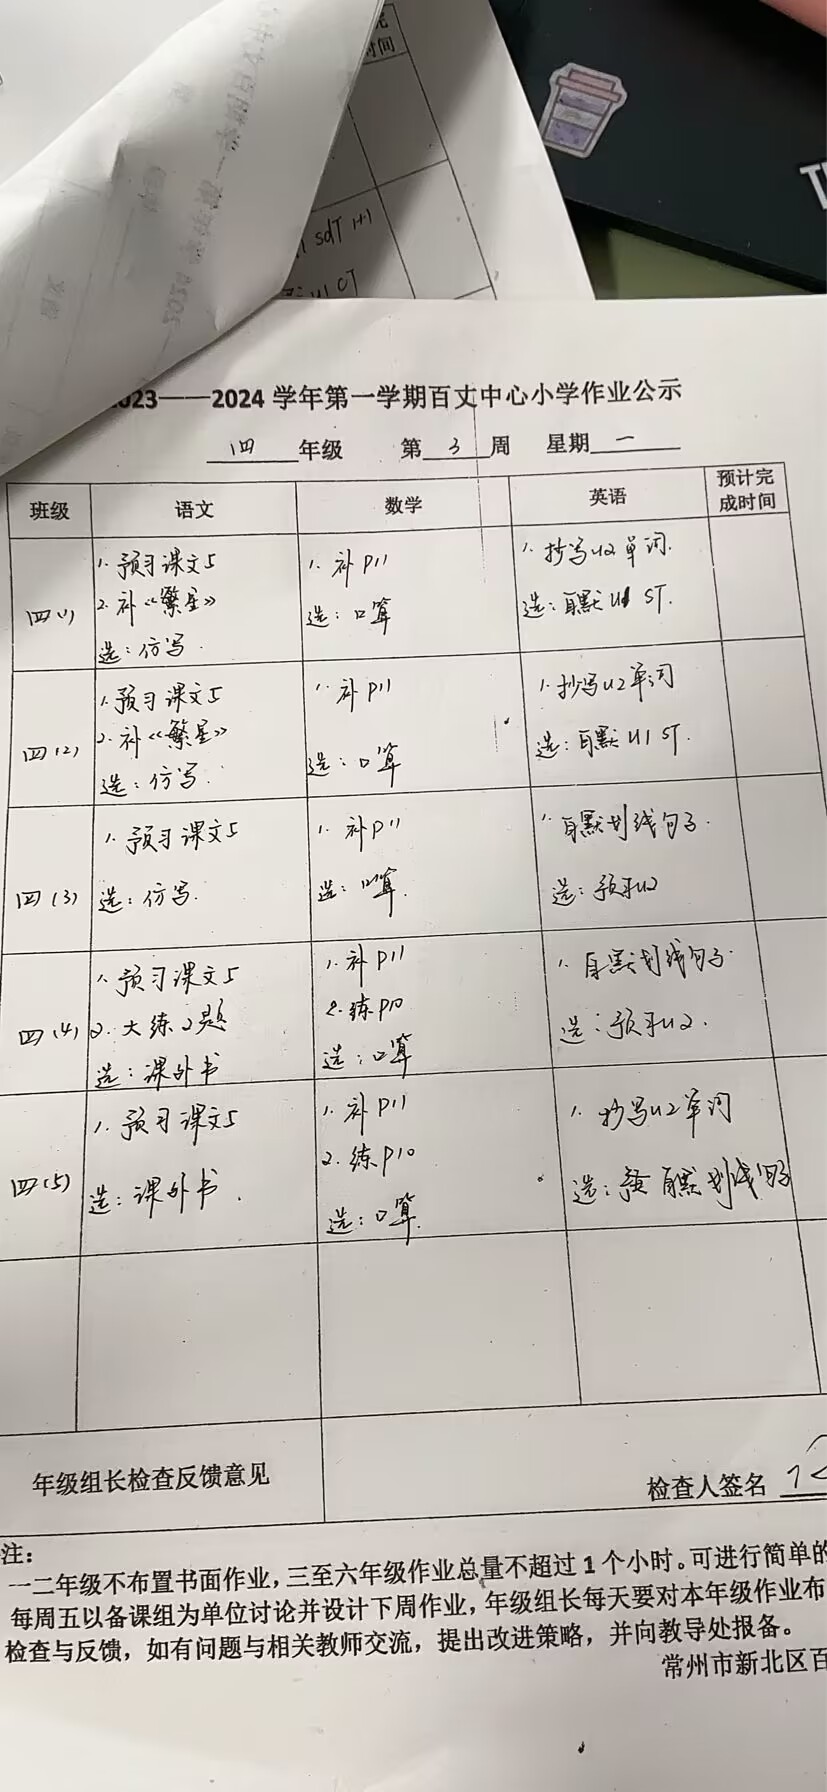 时间
sdT
2023——2024 学年第一学期百丈中心小学作业公示
四 年级 第 3 周 星期 一
班级 语文 数学 英语 预计完成时间
四(1)
1. 预习课文5
2. 补《繁星》
选：仿写.
1. 补P11
选：口算
1. 抄写U2单词.
选：自默U1 ST.
四(2)
1. 预习课文5
2. 补《繁星》
选：仿写.
1. 补P11
选：口算
1. 抄写U2单词
选：自默U1 ST.
四(3)
1. 预习课文5
选：仿写.
1. 补P11
选：口算.
1. 自默划线句子.
选：预习U2
四(4)
1. 预习课文5
2. 大练2题
选：课外书
1. 补P11
2. 练P10
选：口算
1. 自默划线句子.
选：预习U2.
四(5)
1. 预习课文5
选：课外书.
1. 补P11
2. 练P10
选：口算.
1. 抄写U2单词
选：自默划线句子
年级组长检查反馈意见
检查人签名
注：
一二年级不布置书面作业，三至六年级作业总量不超过1个小时。可进行简单的
每周五以备课组为单位讨论并设计下周作业，年级组长每天要对本年级作业布
检查与反馈，如有问题与相关教师交流，提出改进策略，并向教导处报备。
常州市新北区百